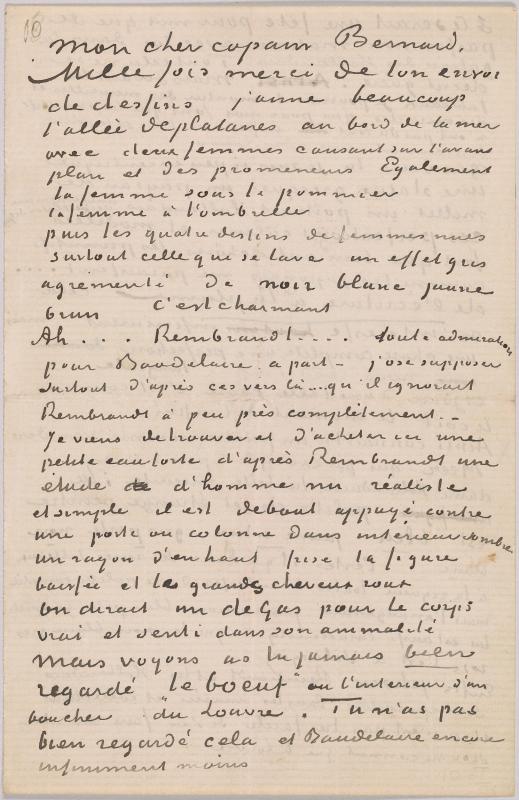 10
mon cher copain Bernard.
Mille fois merci de ton envoi
de dessins j'aime beaucoup
l'allée de platanes au bord de la mer
avec deux femmes causant sur l'avant
plan et des promeneurs Egalement
la femme sous le pommier
la femme à l'ombrelle
puis les quatre dessins de femmes nues
surtout celle qui se lave un effet gris
agrémenté de noir blanc jaune
brun c'est charmant
Ah . . . Rembrandt . . . . toute admiration
pour Baudelaire à part – j'ose supposer
surtout d'après ces vers là.. qu'il ignorait
Rembrandt à peu près complètement. –
Je viens de trouver et d'acheter ici une
petite eau forte d'après Rembrandt une
étude d'homme nu réaliste
et simple il est debout appuyé contre
une porte ou colonne dans intérieur sombre
un rayon d'en haut frise la figure
baissée et les grands cheveux roux
On dirait un deGas pour le corps
vrai et senti dans son animalité
Mais voyons as tu jamais bien
regardé "le boeuf" ou l'intérieur d'un
boucher du Louvre. Tu n'as pas
bien regardé cela et Baudelaire encore
infiniment moins